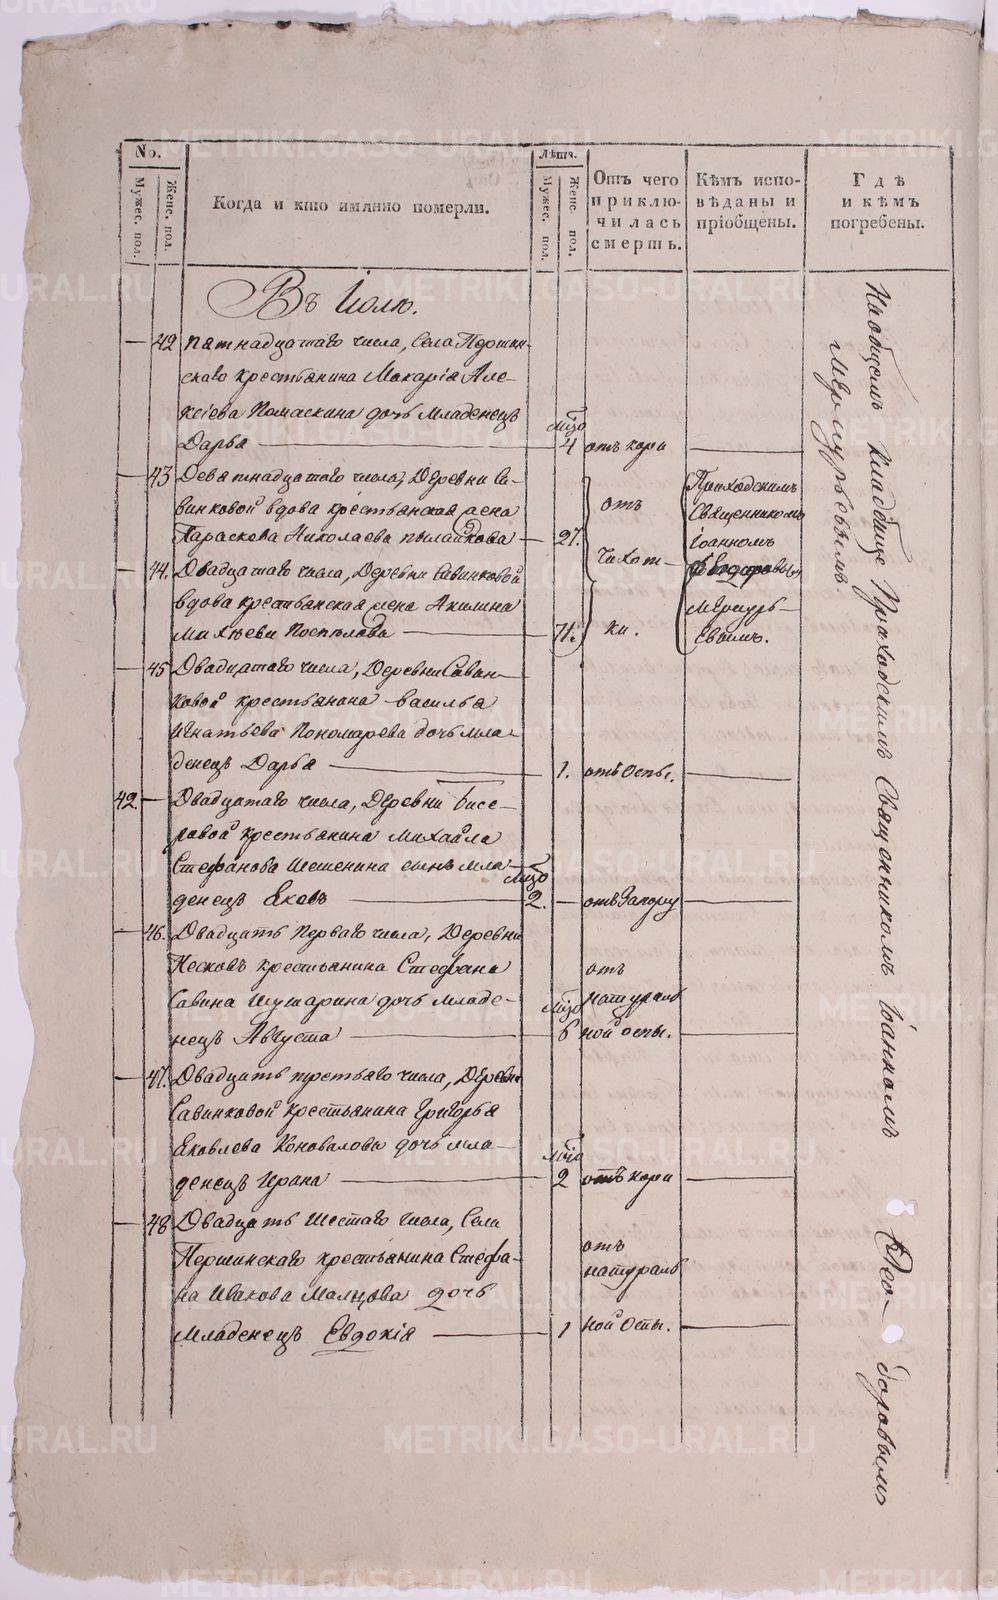 No.
Мужес. пол.
Женс. пол.
Когда и кто имянно померли.
Лѣта.
Мужес. пол.
Женс. пол.
Отъ чего приклю-чилась смерть.
Кѣмъ испо-вѣданы и пріобщены.
Гдѣ и кѣмъ погребены.
Въ Іюлѣ.
— 42 Пятнадцатаго числа, Села Першин-
скаго крестьянина Макарія Але-
ксіева Помаскина дочь младенецъ
Дарья — мцо 4 отъ кори —
— 43 Девятнадцатаго числа, Деревни Са-
винковой вдова крестьянская жена
Параскева Николаева — 27.
— 44. Двадцатаго числа, Деревни Савинковой
вдова крестьянская жена Акилина
Михѣева Поспѣлова — 71.
отъ
чахот-
ки.
Приходскимъ
Священникомъ
Іоанномъ
Ѳеодоровымъ
Меркурь-
евымъ.
— 45 Двадцатаго числа, Деревни Савин-
ковой крестьянина Василья
Игнатьева Пономарева дочь мла-
денецъ Дарья — 1. отъ Оспы. —
42. — Двадцатаго числа, Деревни Бисе-
ровой крестьянина Михайла
Стефанова Шешенина сынъ мла
денецъ Яковъ — мцо 2. — отъ Запору —
— 46. Двадцать Перваго числа, Деревни
Песковъ крестьянина Стефана
Савина Шушарина дочь младе-
нецъ Августа — мцо 6 отъ натураль
ной оспы. —
— 47. Двадцать третьяго числа, Деревни
Савинковой крестьянина Григорья
Яковлева Коновалова дочь мла-
денецъ Ирина — мцо 2 отъ кори —
— 48 Двадцать Шестаго числа, Села
Першинскаго крестьянина Стефа-
на Иванова Малцова дочь
младенецъ Евдокія — 1 отъ натураль
ной Оспы. —
На общемъ кладбище Приходскимъ Священникомъ Іоанномъ Ѳео-доровымъ
Меркурьевымъ.
METRIKI.GASO-URAL.RU